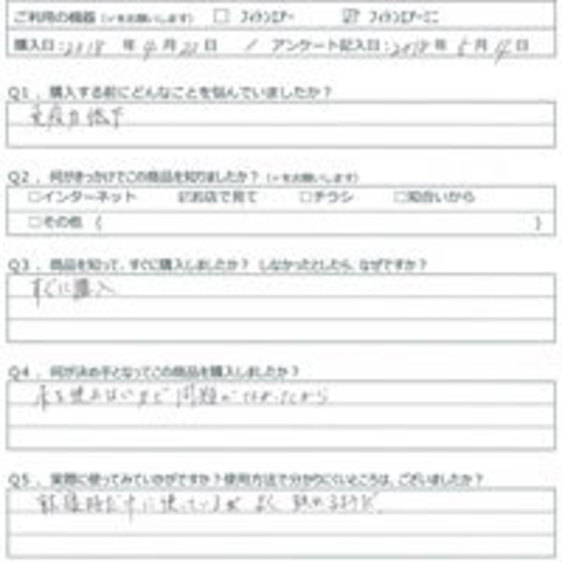 ご利用の機器（✓をお願いします） □ フィトンエアー ☑ フィトンエアーミニ
購入日：2018 年 4 月 21 日 ／ アンケート記入日：2018 年 5 月 4 日
Q1．購入する前にどんなことを悩んでいましたか？
免疫力低下
Q2．何がきっかけでこの商品を知りましたか？（✓をお願いします）
□インターネット ☑お店で見て □チラシ □知合いから
□その他（ ）
Q3．商品を知って、すぐに購入しましたか？ しなかったとしたら、なぜですか？
すぐに購入
Q4．何が決め手となってこの商品を購入しましたか？
問題が なかったから
Q5．実際に使ってみていかがですか？使用方法で分かりにくいところは、ございましたか？
に使っているが よく